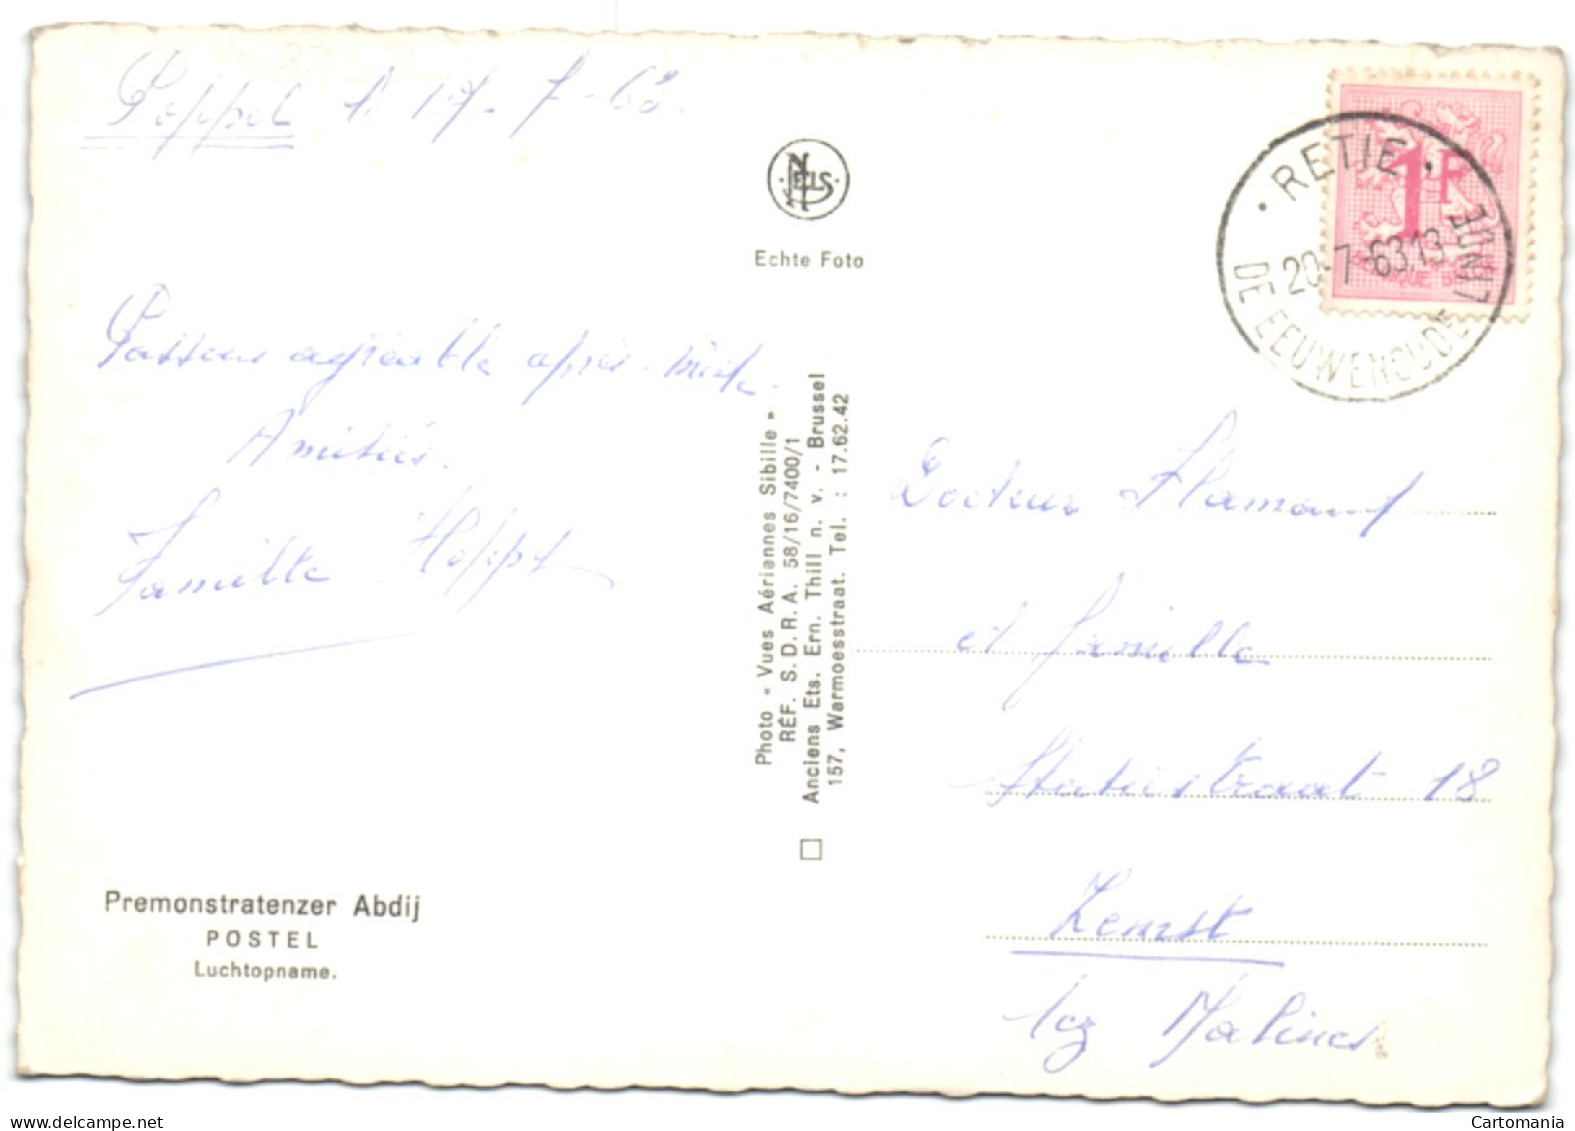 Poppel le 17-7-63.
NELS
Echte Foto
1F
• RETIE •
20-7-63.13
DE EEUWENOUDE LINDE
Passons agréable après-midi.
Amitiés.
Famille Hoppt
Photo « Vues Aériennes Sibille »
RÉF. S.D.R.A. 58/16/7400/1
Anciens Ets. Ern. Thill n. v. - Brussel
157, Warmoesstraat. Tel. : 17.62.42
Docteur Flamant
et famille
Statiestraat 18
Zemst
lez Malines
Premonstratenzer Abdij
POSTEL
Luchtopname.
delcampe.net
Cartomania